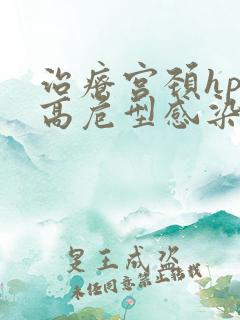 治疗宫颈hp
高危型感染
皇王成盗
未经同意禁止转载